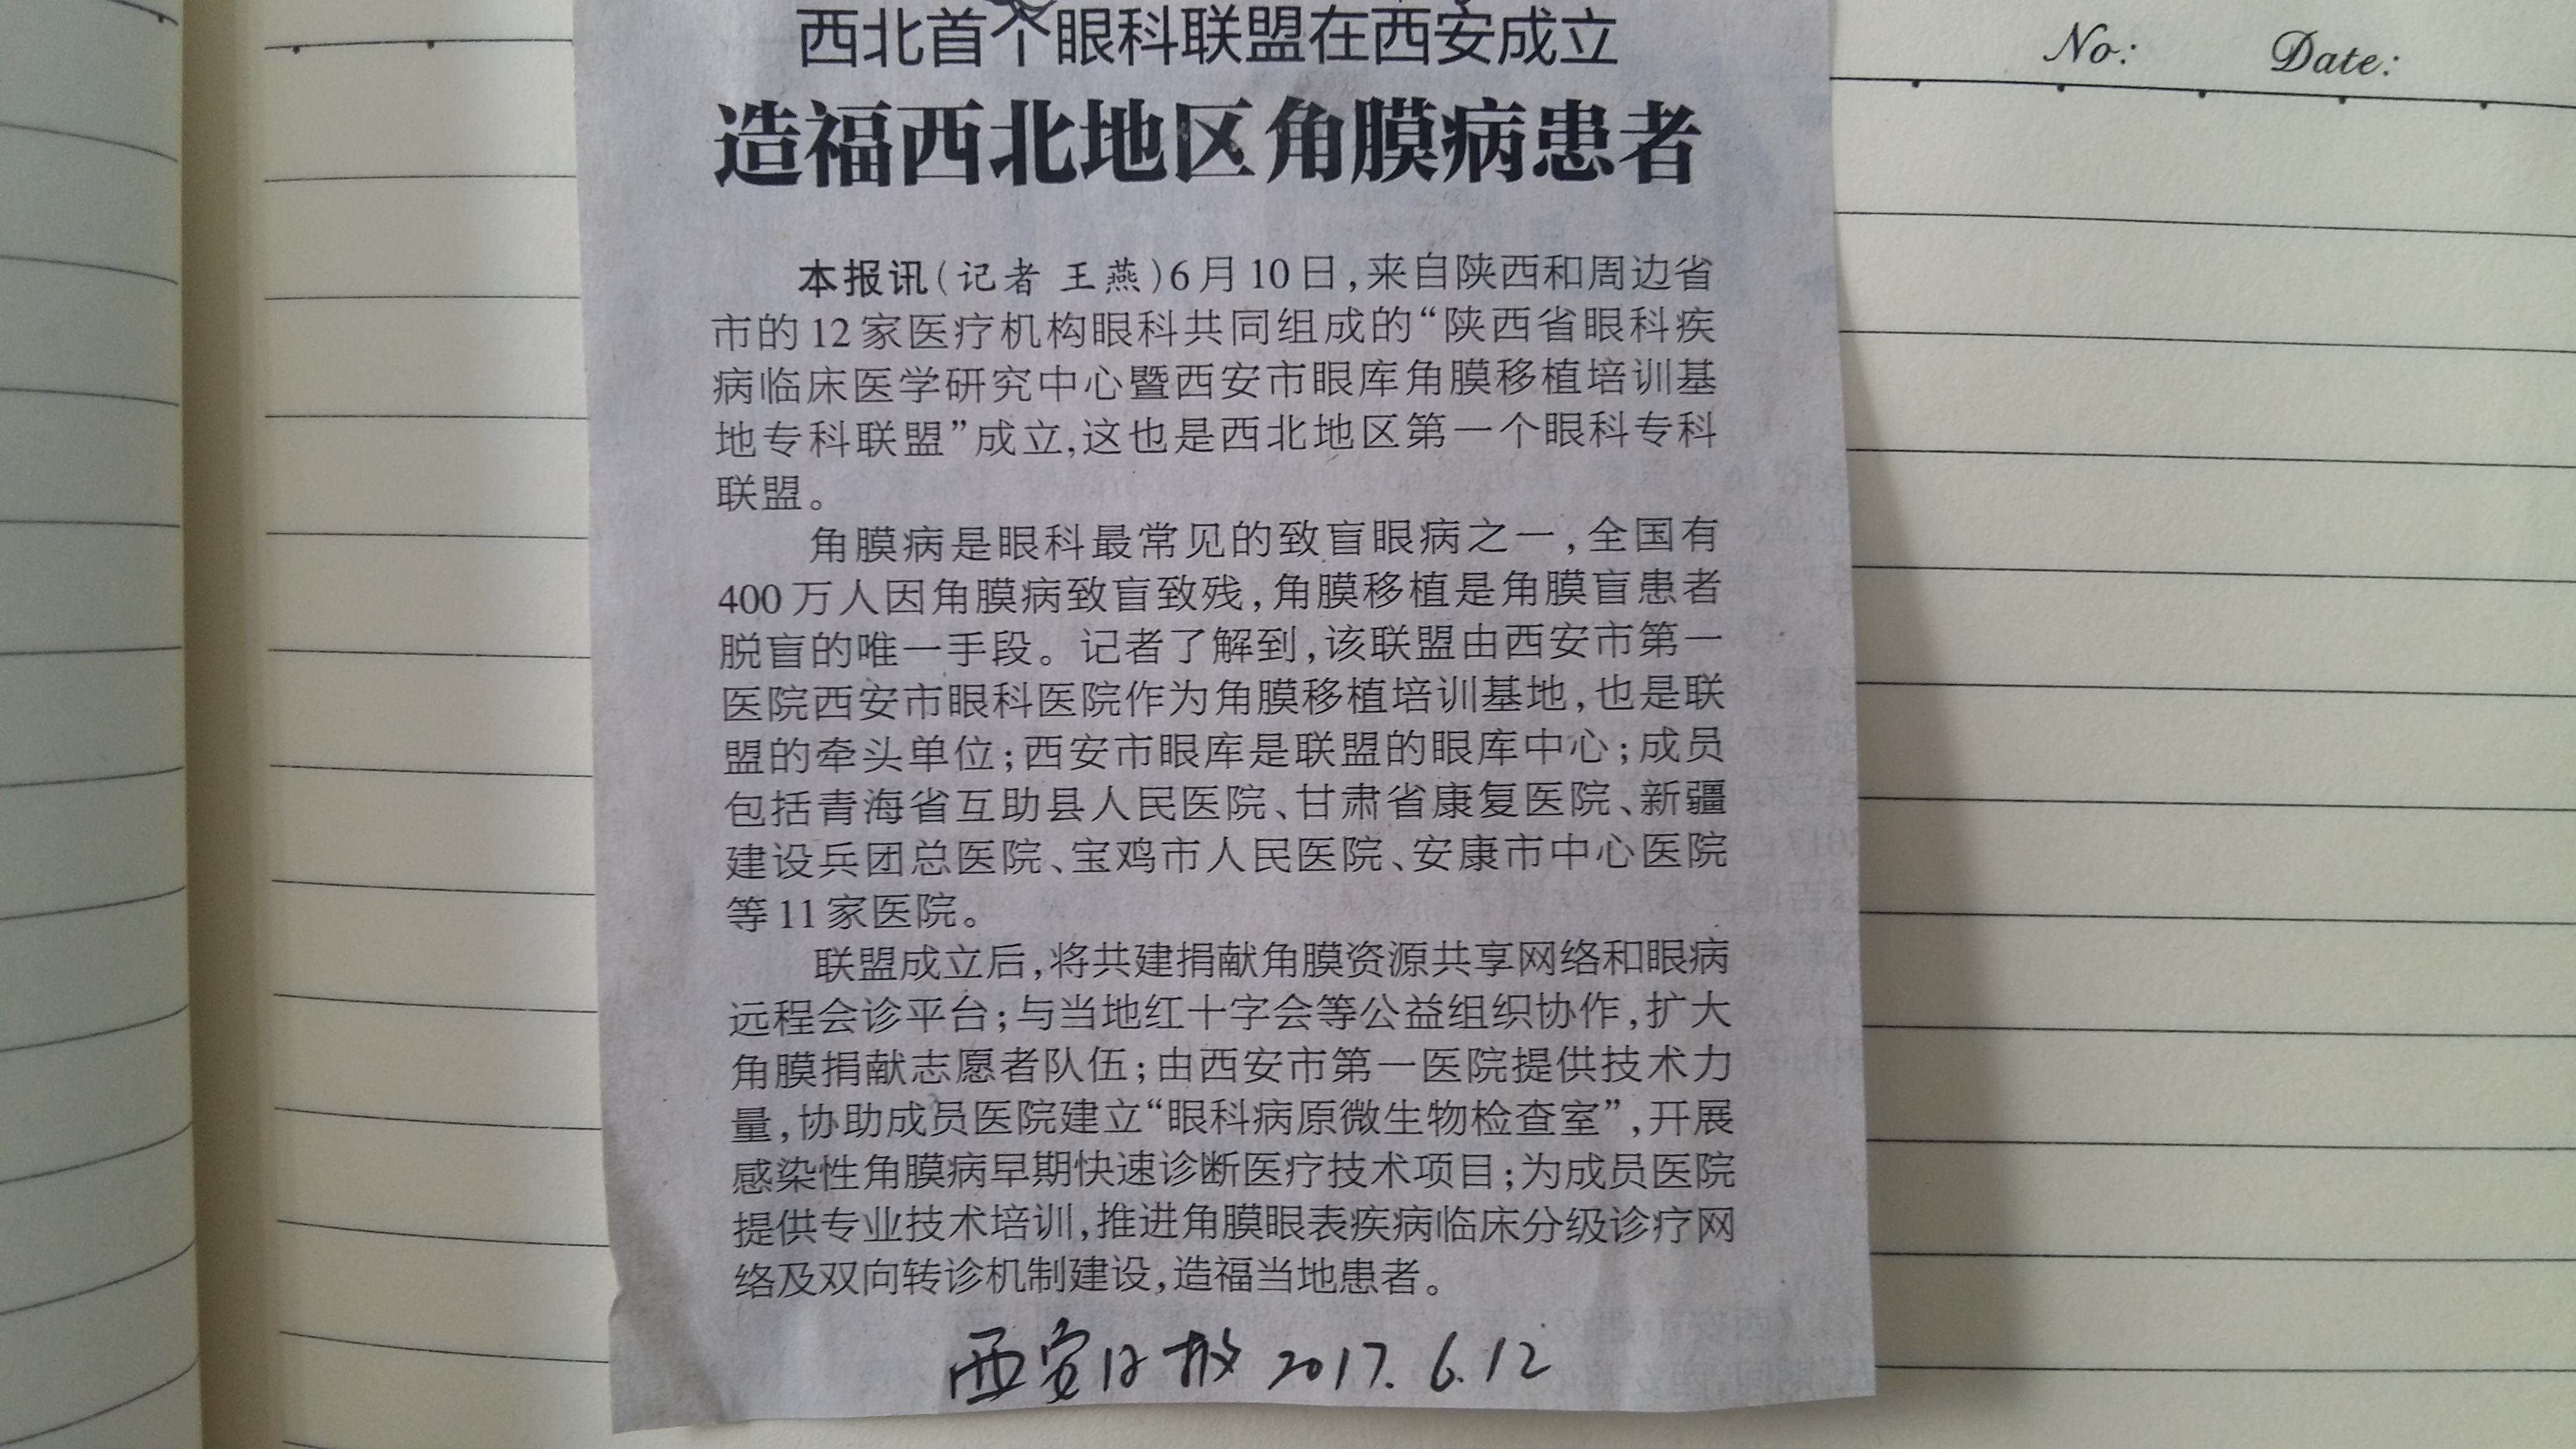 西北首个眼科联盟在西安成立
No: Date:
造福西北地区角膜病患者
本报讯(记者 王燕)6月10日,来自陕西和周边省
市的12家医疗机构眼科共同组成的“陕西省眼科疾
病临床医学研究中心暨西安市眼库角膜移植培训基
地专科联盟”成立,这也是西北地区第一个眼科专科
联盟。
角膜病是眼科最常见的致盲眼病之一,全国有
400万人因角膜病致盲致残,角膜移植是角膜盲患者
脱盲的唯一手段。记者了解到,该联盟由西安市第一
医院西安市眼科医院作为角膜移植培训基地,也是联
盟的牵头单位;西安市眼库是联盟的眼库中心;成员
包括青海省互助县人民医院、甘肃省康复医院、新疆
建设兵团总医院、宝鸡市人民医院、安康市中心医院
等11家医院。
联盟成立后,将共建捐献角膜资源共享网络和眼病
远程会诊平台;与当地红十字会等公益组织协作,扩大
角膜捐献志愿者队伍;由西安市第一医院提供技术力
量,协助成员医院建立“眼科病原微生物检查室”,开展
感染性角膜病早期快速诊断医疗技术项目;为成员医院
提供专业技术培训,推进角膜眼表疾病临床分级诊疗网
络及双向转诊机制建设,造福当地患者。
西安日报 2017.6.12